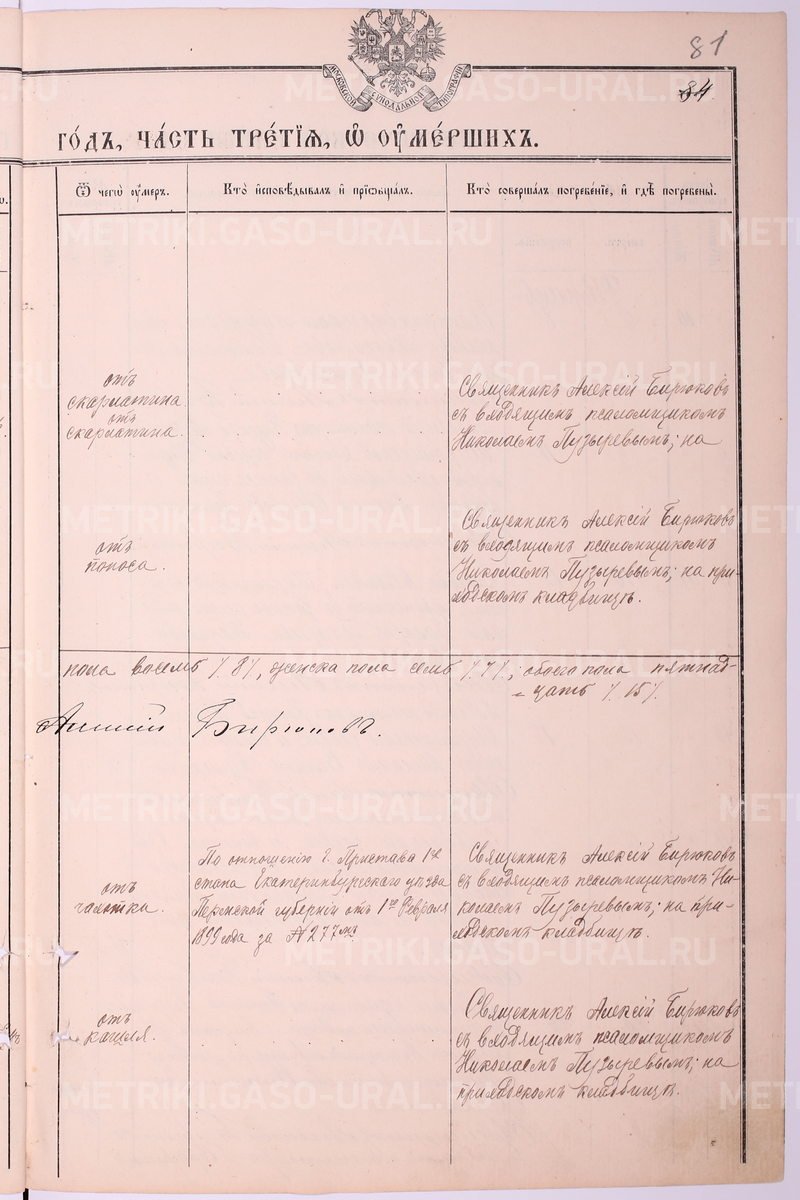 81
84
МОСКОВСКОЙ СѴНОДАЛЬНОЙ ТИПОГРАФІИ
го́дъ, ча́сть тре́тїѧ, ѡ҆ ᲂу҆ме́ршихъ.
Ѿ чегѡ̀ ᲂу҆́мер.
Кто̀ и҆сповѣ́дывалъ и҆ прїѡбща́лъ.
Кто̀ соверша́лъ погребе́нїе, и҆ гдѣ̀ погребены̀.
отъ
скарлатина
отъ
скарлатина.
Священникъ Алексій Бирюковъ
съ и. псаломщикомъ
Николаемъ Пузыревымъ; на
отъ
поноса.
Священникъ Алексій Бирюковъ
съ псаломщикомъ
Николаемъ Пузыревымъ; на при-
ходскомъ кладбищѣ.
пола восемь /.8/, женска пола семь /.7/.; обоего пола пятнад-
цать /.15/.
Алексій Бирюковъ.
отъ
чахотка.
По отношенію Г. Пристава 1го
стана Екатеринбургскаго уѣзда
Пермской губерніи отъ 1го Февраля
1899 года за № 277мъ
Священникъ Алексій Бирюковъ
съ псаломщикомъ Ни-
колаемъ Пузыревымъ; на при-
ходскомъ кладбищѣ.
отъ
кашля.
Священникъ Алексій Бирюковъ
съ псаломщикомъ
Николаемъ Пузыревымъ; на
приходскомъ кладбищѣ.
METRIKI.GASO-URAL.RU